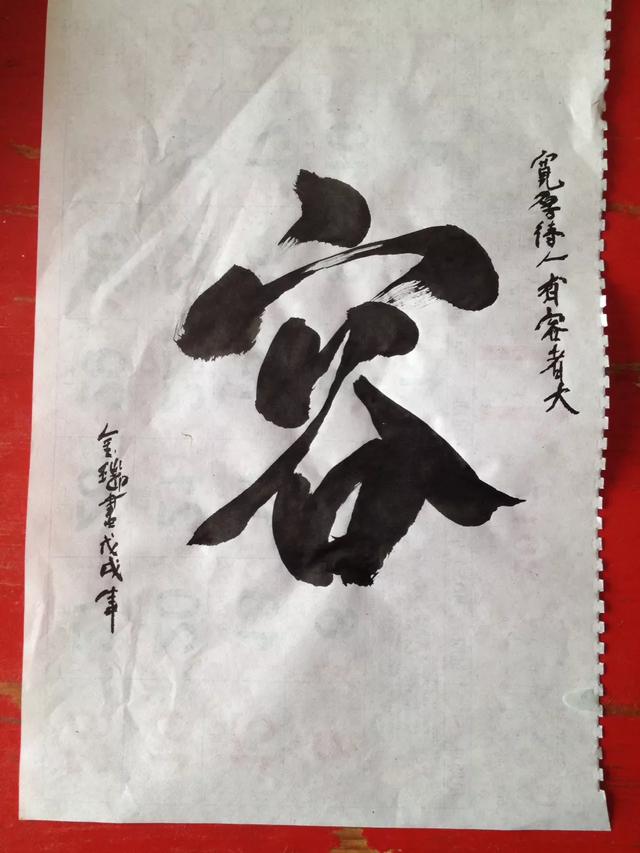 寬厚待人有容者大
容
金書戊戌年